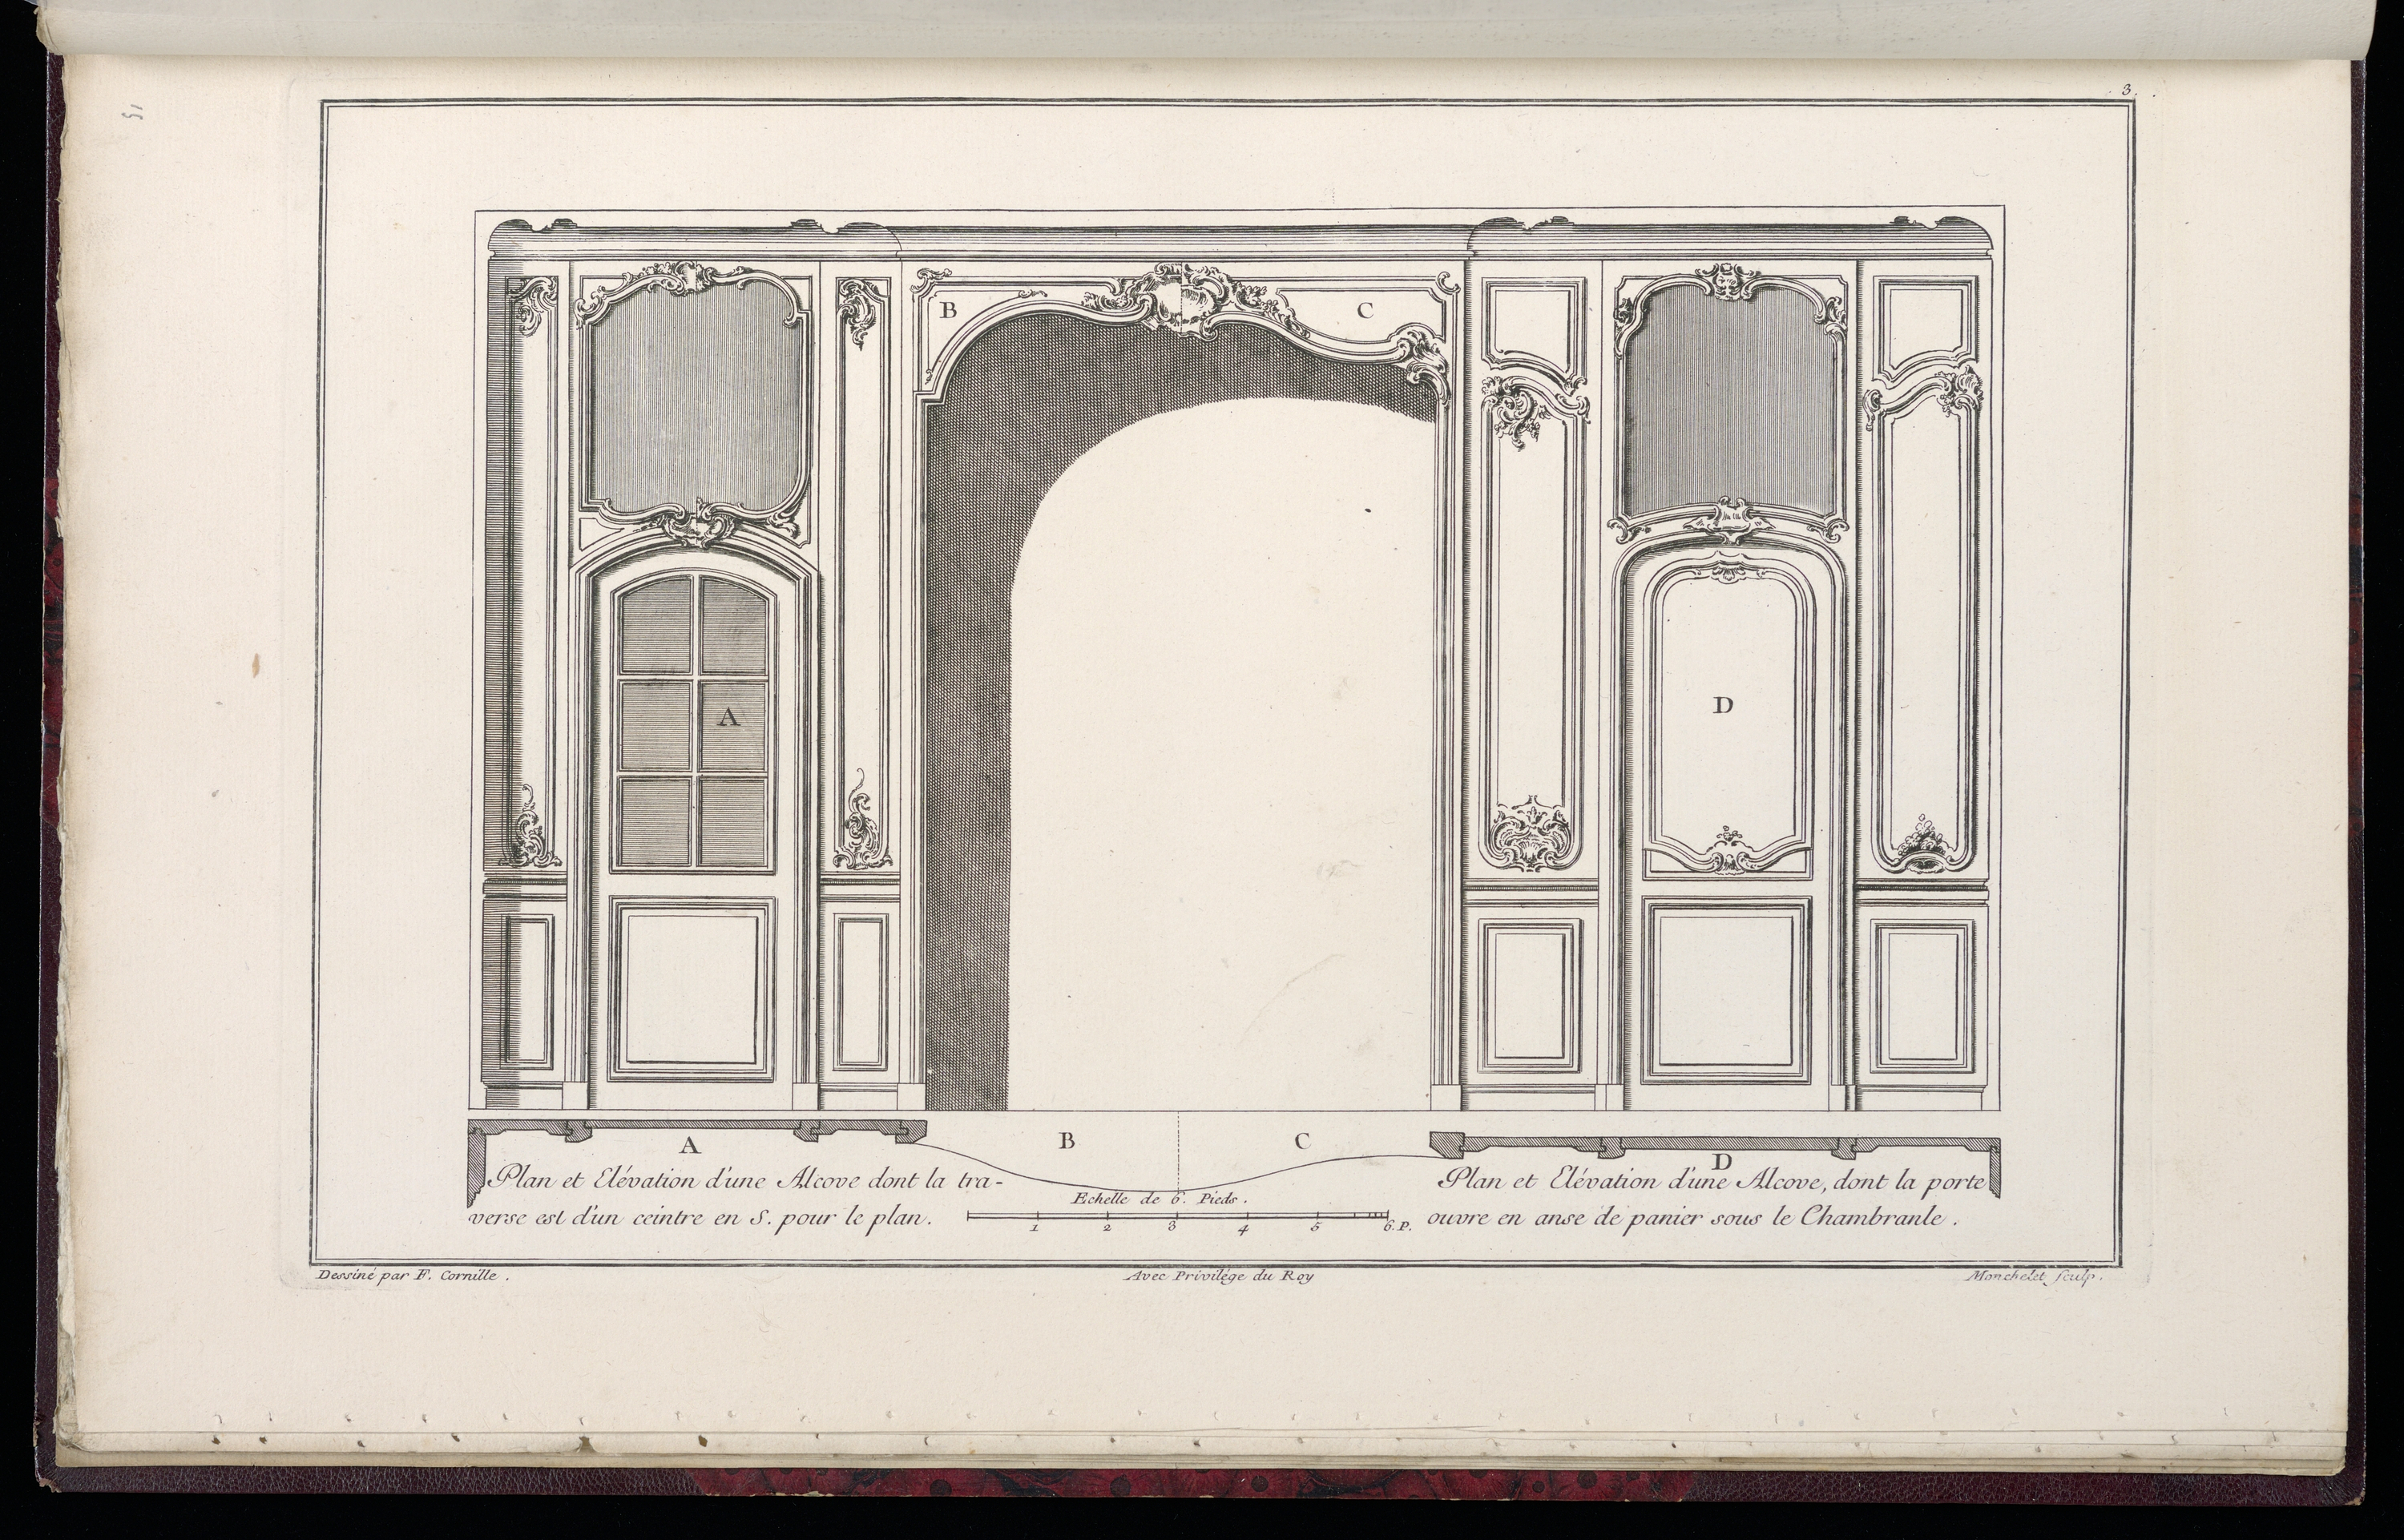 3.
15
B
C
A
D
A
B
C
D
Plan et Elévation d'une Alcove dont la tra-
verse est d'un ceintre en S. pour le plan.
Echelle de 6. Pieds.
1 2 3 4 5 6.P.
Plan et Elévation d'une Alcove, dont la porte
ouvre en anse de panier sous le Chambranle.
Dessiné par F. Cornille.
Avec Privilége du Roy
Monchelet Sculp.